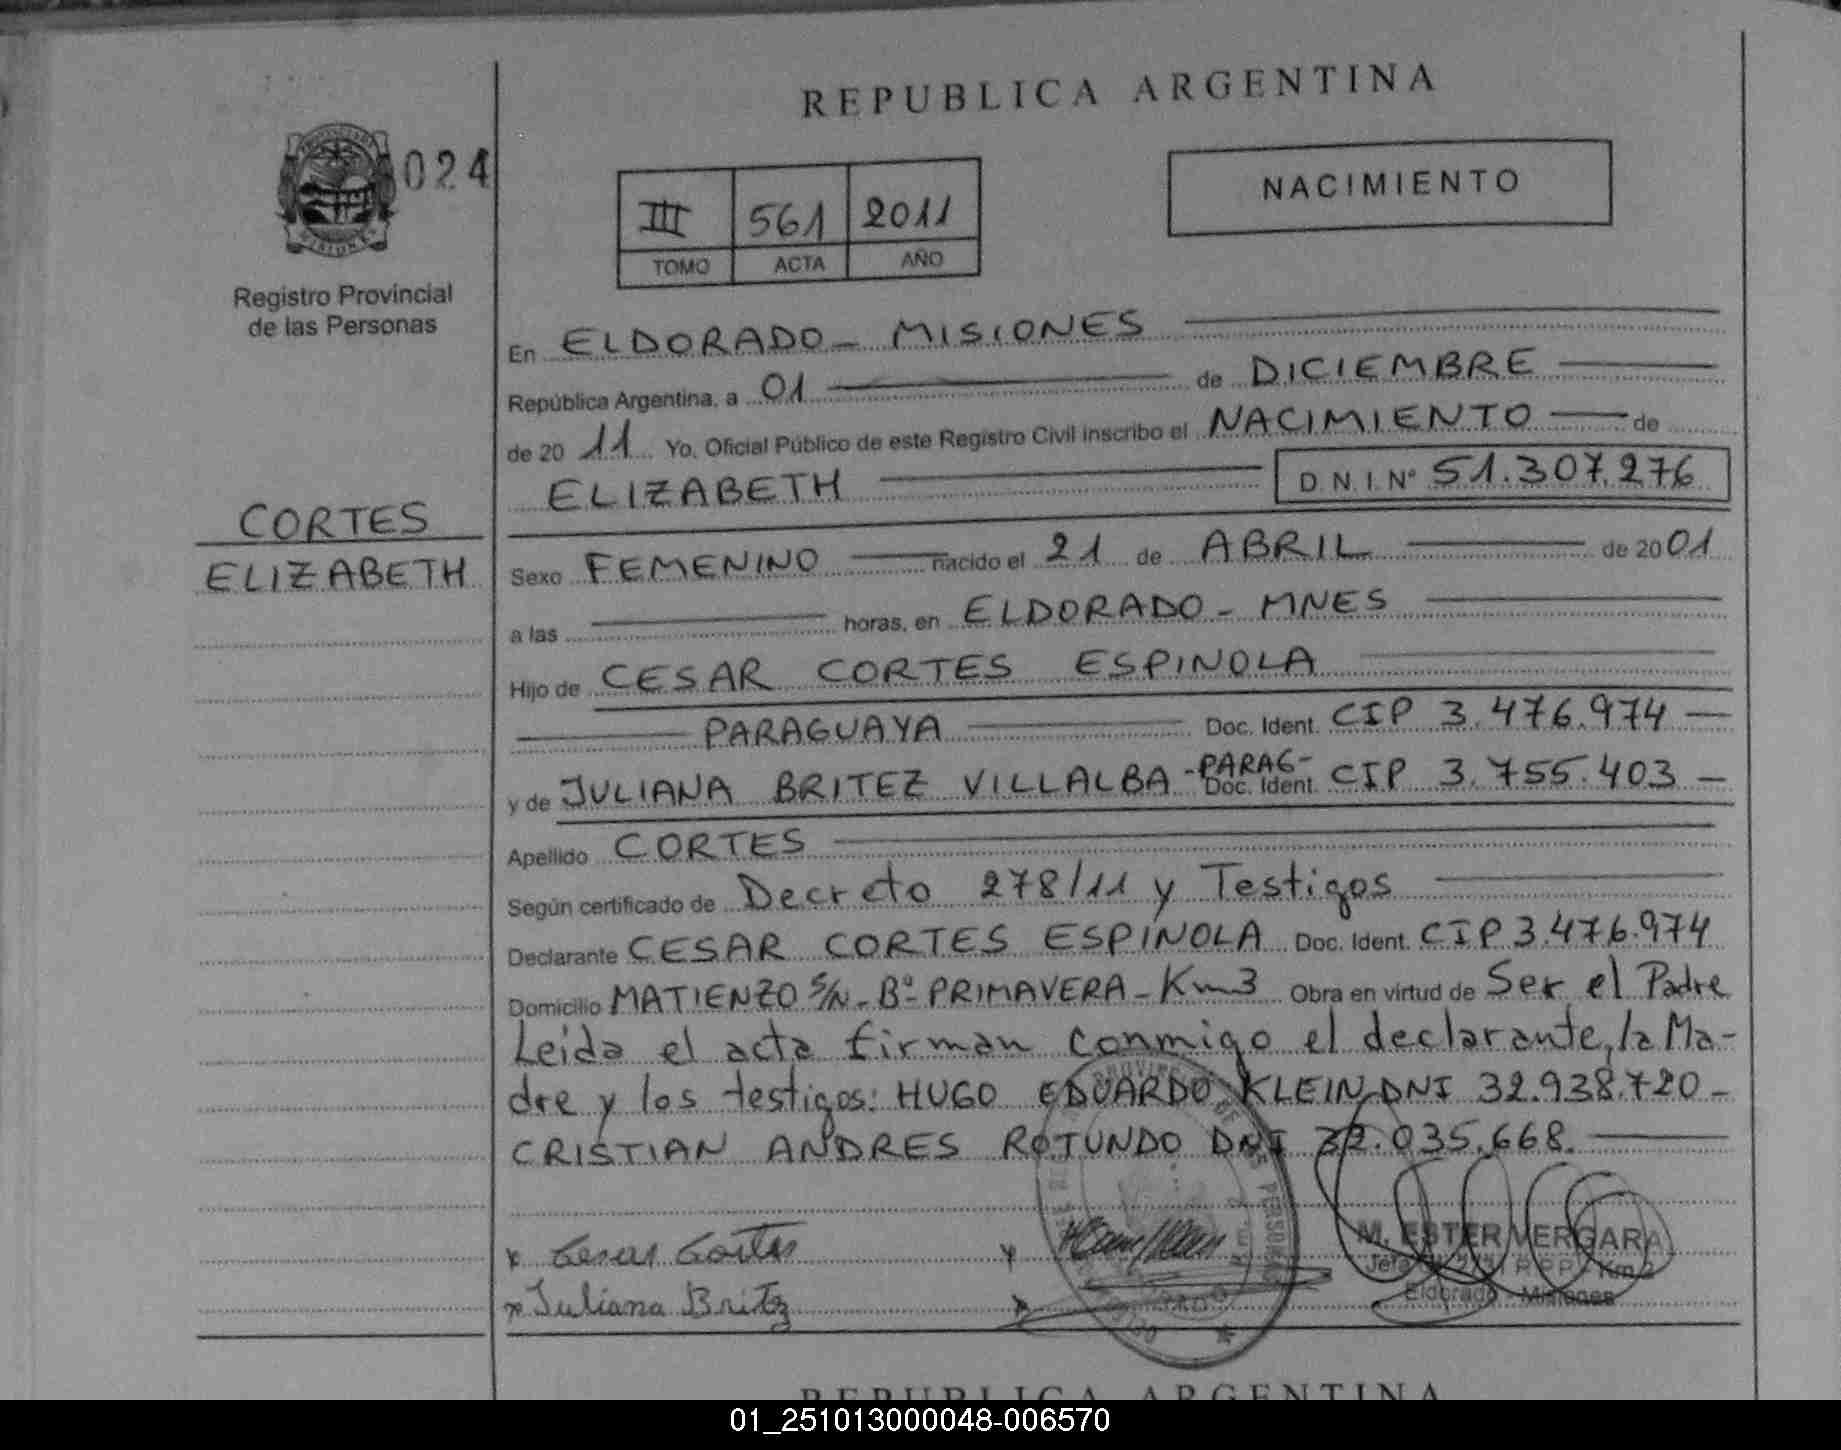 REPUBLICA ARGENTINA
024
NACIMIENTO
III 561 2011
TOMO ACTA AÑO
Registro Provincial
de las Personas
En ELDORADO - MISIONES
República Argentina, a 01 de DICIEMBRE
de 20 11 Yo, Oficial Público de este Registro Civil inscribo el NACIMIENTO de
ELIZABETH D.N.I. Nº 51.307.276
CORTES
ELIZABETH
Sexo FEMENINO nacido el 21 de ABRIL de 2001
a las horas, en ELDORADO - MNES
Hijo de CESAR CORTES ESPINOLA
PARAGUAYA Doc. Ident. CIP 3.476.974
y de JULIANA BRITEZ VILLALBA - PARAG- Doc. Ident. CIP 3.755.403
Apellido CORTES
Según certificado de Decreto 278/11 y Testigos
Declarante CESAR CORTES ESPINOLA Doc. Ident. CIP 3.476.974
Domicilio MATIENZO S/N - Bº PRIMAVERA - Km3 Obra en virtud de Ser el Padre
Leida el acta firman conmigo el declarante, la Ma-
dre y los testigos: HUGO EDUARDO KLEIN DNI 32.938.720 -
CRISTIAN ANDRES ROTUNDO DNI 32.035.668.
x Cesar Cortes
x Juliana Britz
M. ESTER VERGARA
Eldorado - Misiones
REPUBLICA ARGENTINA
01_251013000048-006570